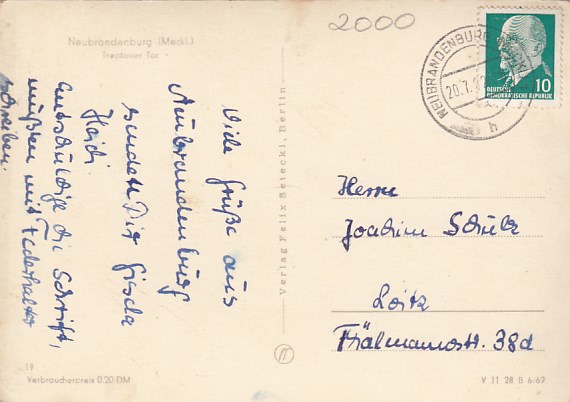 2000
Neubrandenburg (Meckl.)
Treptower Tor
Viele Grüße aus
Neubrandenburg
sendet Dir Gisela
Heidi.
Entschuldige die Schrift,
mußten mit Federhalter
schreiben.
Verlag Felix Setecki, Berlin
NEUBRANDENBURG
20.7.
h
10
DEUTSCHE
DEMOKRATISCHE REPUBLIK
Herrn
Joachim Schulz
Loitz
Thälmannstr. 38d
19
Verbraucherpreis 0.20 DM
V 11 28 B 6/62